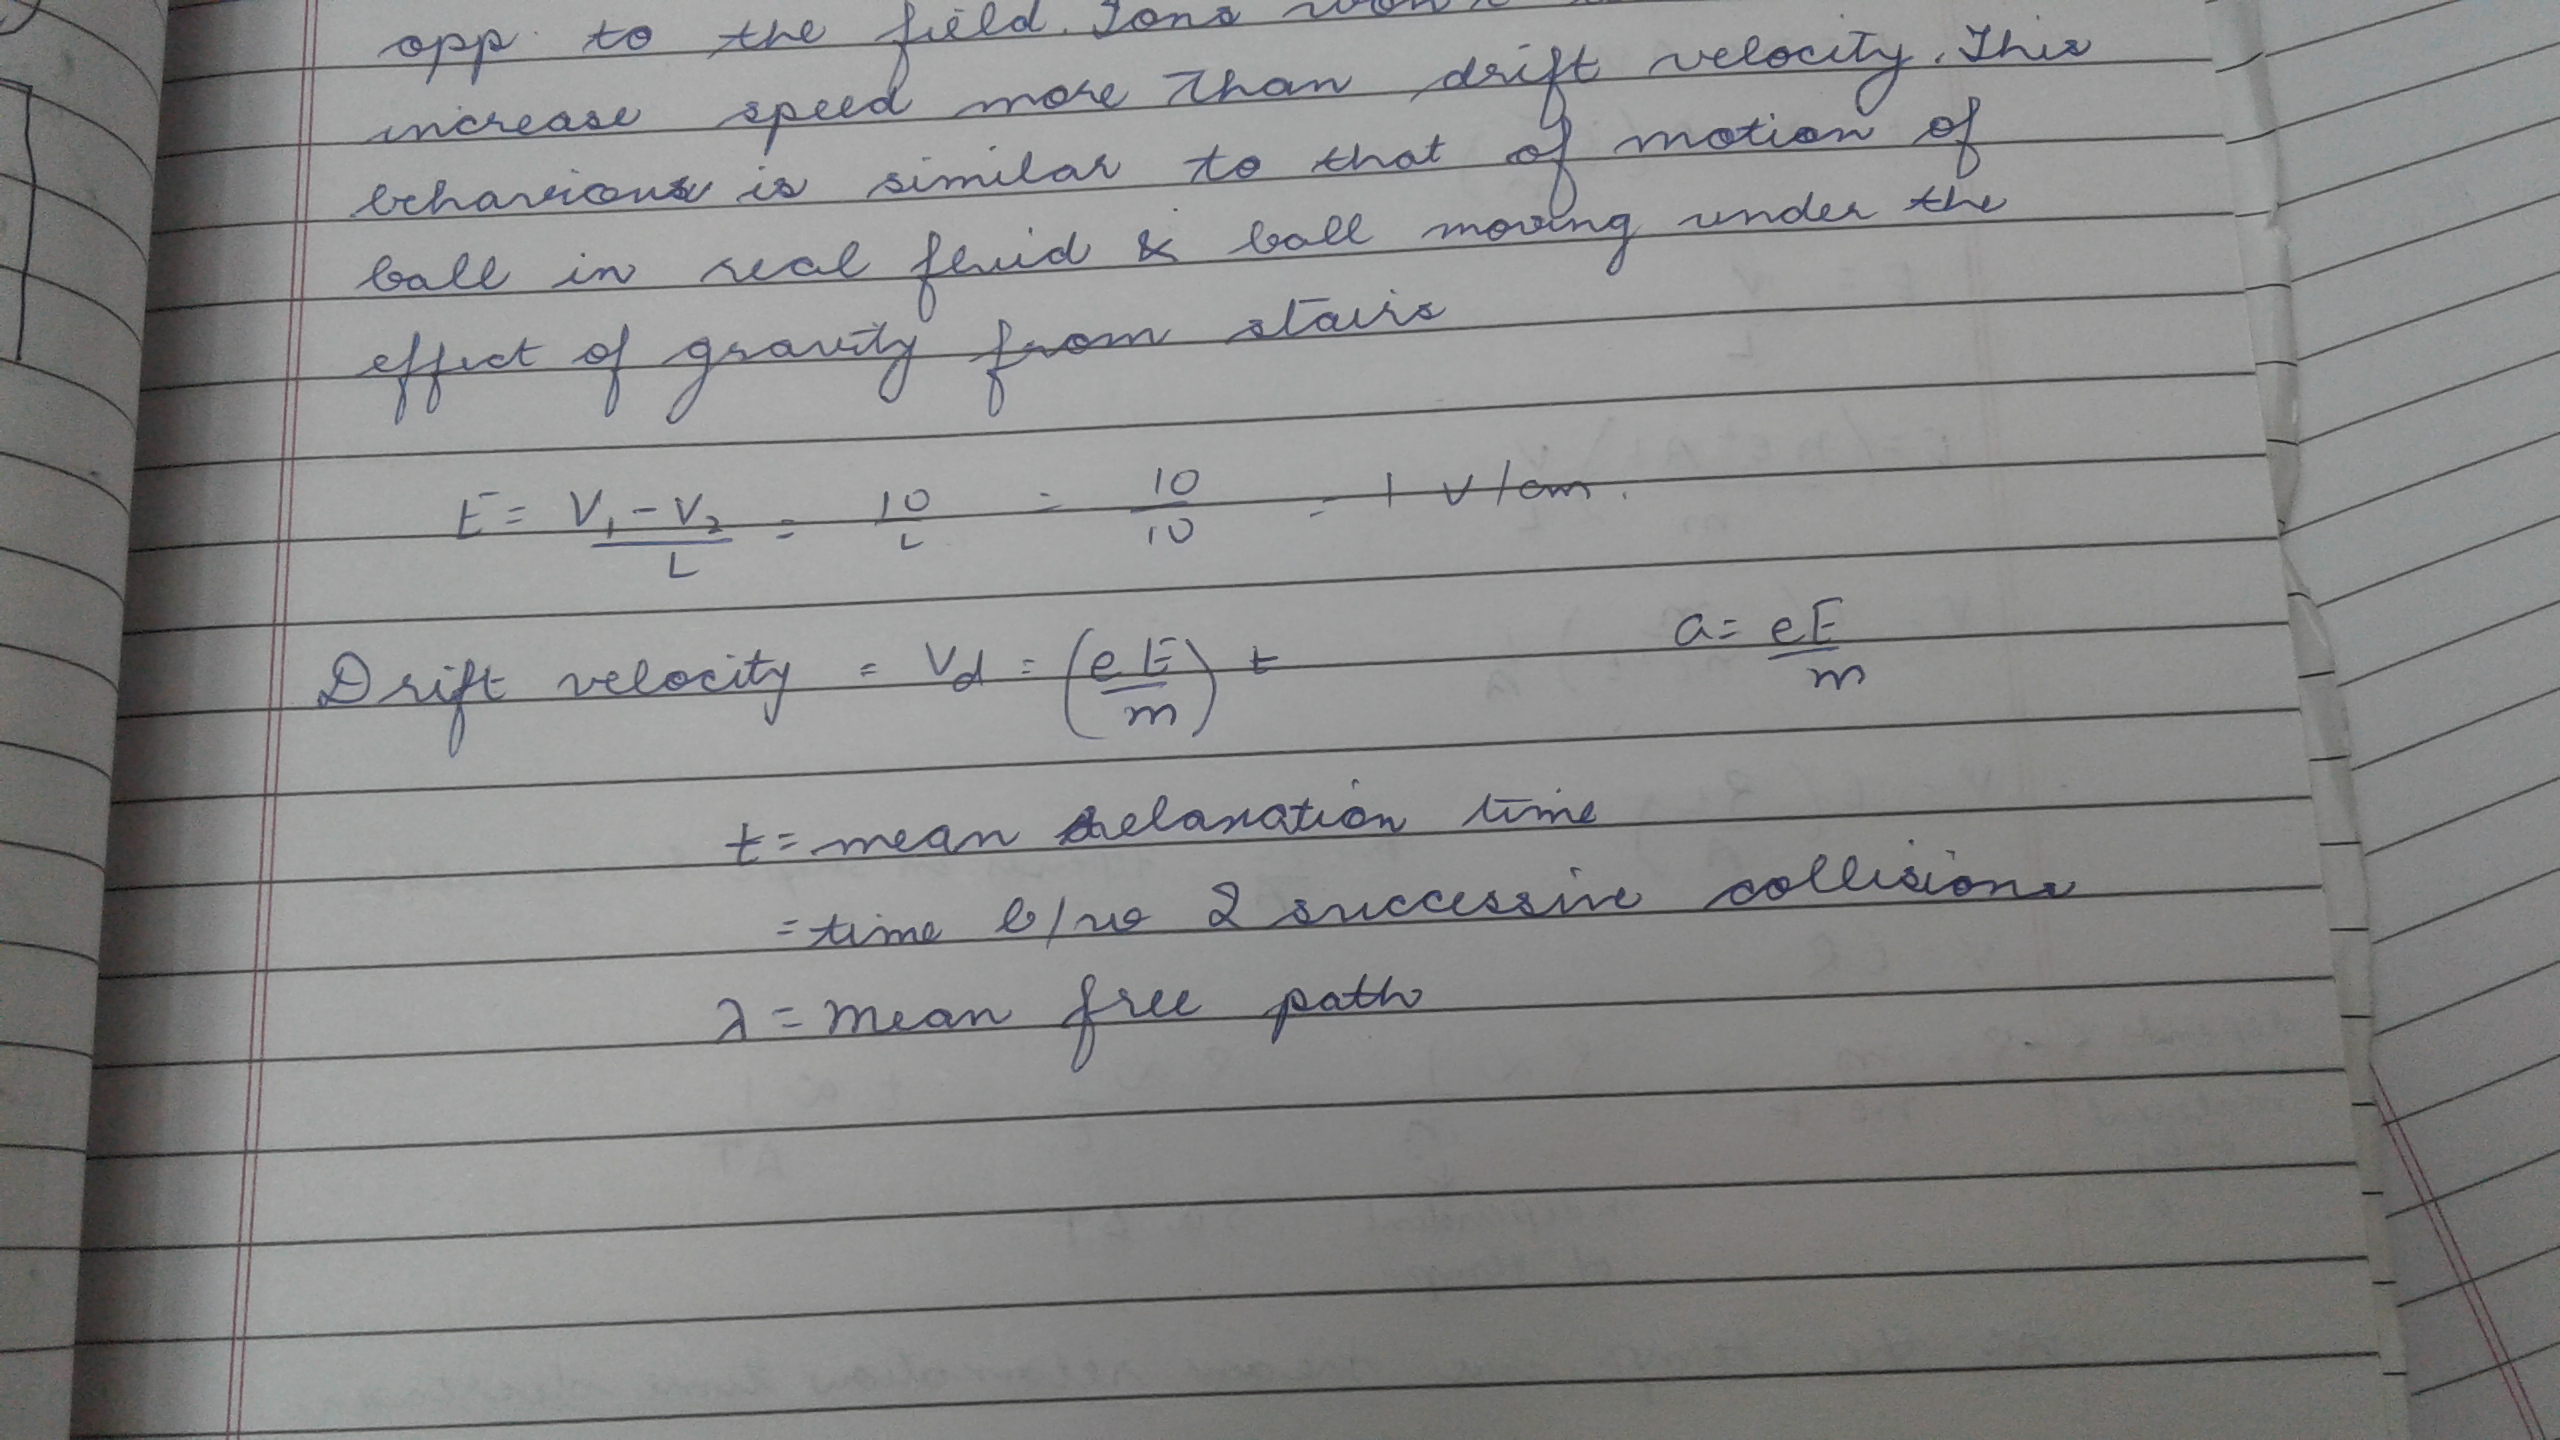 opp. to the field. Ions won't
increase speed more than drift velocity. This
behaviour is similar to that of motion of
ball in real fluid & ball moving under the
effect of gravity from stairs
E = V₁ - V₂ / L = 10 / L = 10 / 10 = 1 V/cm.
a = eE / m
Drift velocity = Vd = (eE / m) t
t = mean relaxation time
= time b/w 2 successive collisions
λ = mean free path